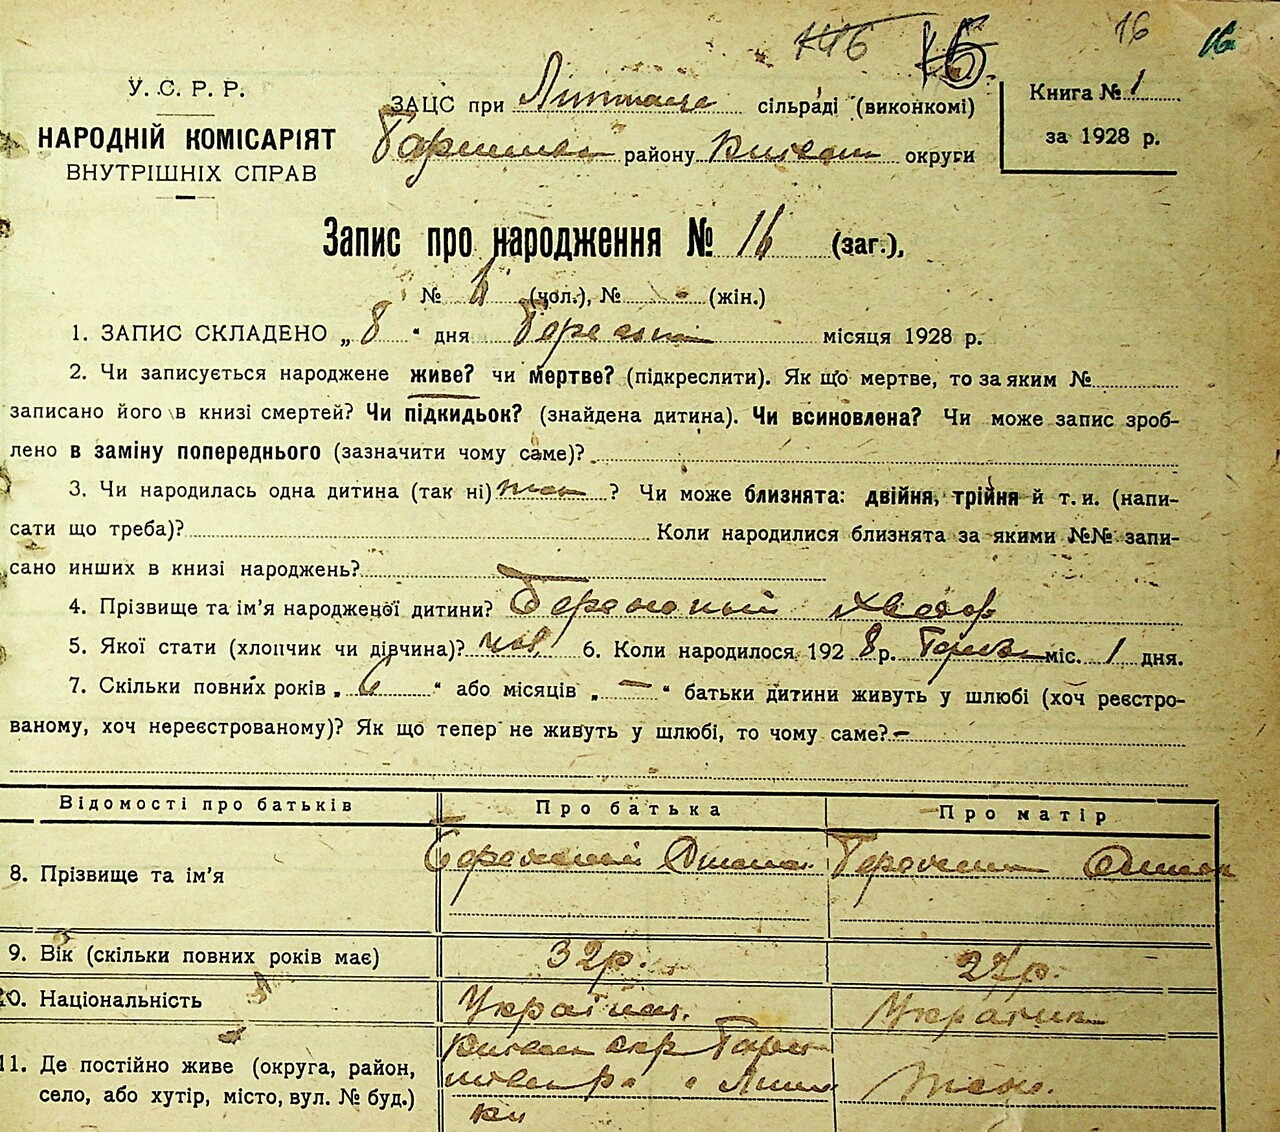 16
16
У. С. Р. Р.
НАРОДНІЙ КОМІСАРІЯТ
ВНУТРІШНІХ СПРАВ
ЗАЦС при сільраді (виконкомі)
району округи
Книга № 1
за 1928 р.
Запис про народження № 16 (заг.),
№ (чол.), № - (жін.)
1. ЗАПИС СКЛАДЕНО „ 8 “ дня місяця 1928 р.
2. Чи записується народжене живе? чи мертве? (підкреслити). Як що мертве, то за яким №
записано його в книзі смертей? Чи підкидьок? (знайдена дитина). Чи всиновлена? Чи може запис зроб-
лено в заміну попереднього (зазначити чому саме)?
3. Чи народилась одна дитина (так ні) так ? Чи може близнята: двійня, трійня й т. и. (напи-
сати що треба)? Коли народилися близнята за якими №№ запи-
сано инших в книзі народжень?
4. Прізвище та ім’я народженої дитини? Хведор
5. Якої стати (хлопчик чи дівчина)? чол 6. Коли народилося 192 8 р. міс. 1 дня.
7. Скільки повних років „ 6 “ або місяців „ — “ батьки дитини живуть у шлюбі (хоч реєстро-
ваному, хоч нереєстрованому)? Як що тепер не живуть у шлюбі, то чому саме? —
Відомості про батьків Про батька Про матір
8. Прізвище та ім’я
9. Вік (скільки повних років має) 32 р. 27 р.
10. Національність Україн. Украін
11. Де постійно живе (округа, район,
село, або хутір, місто, вул. № буд.)